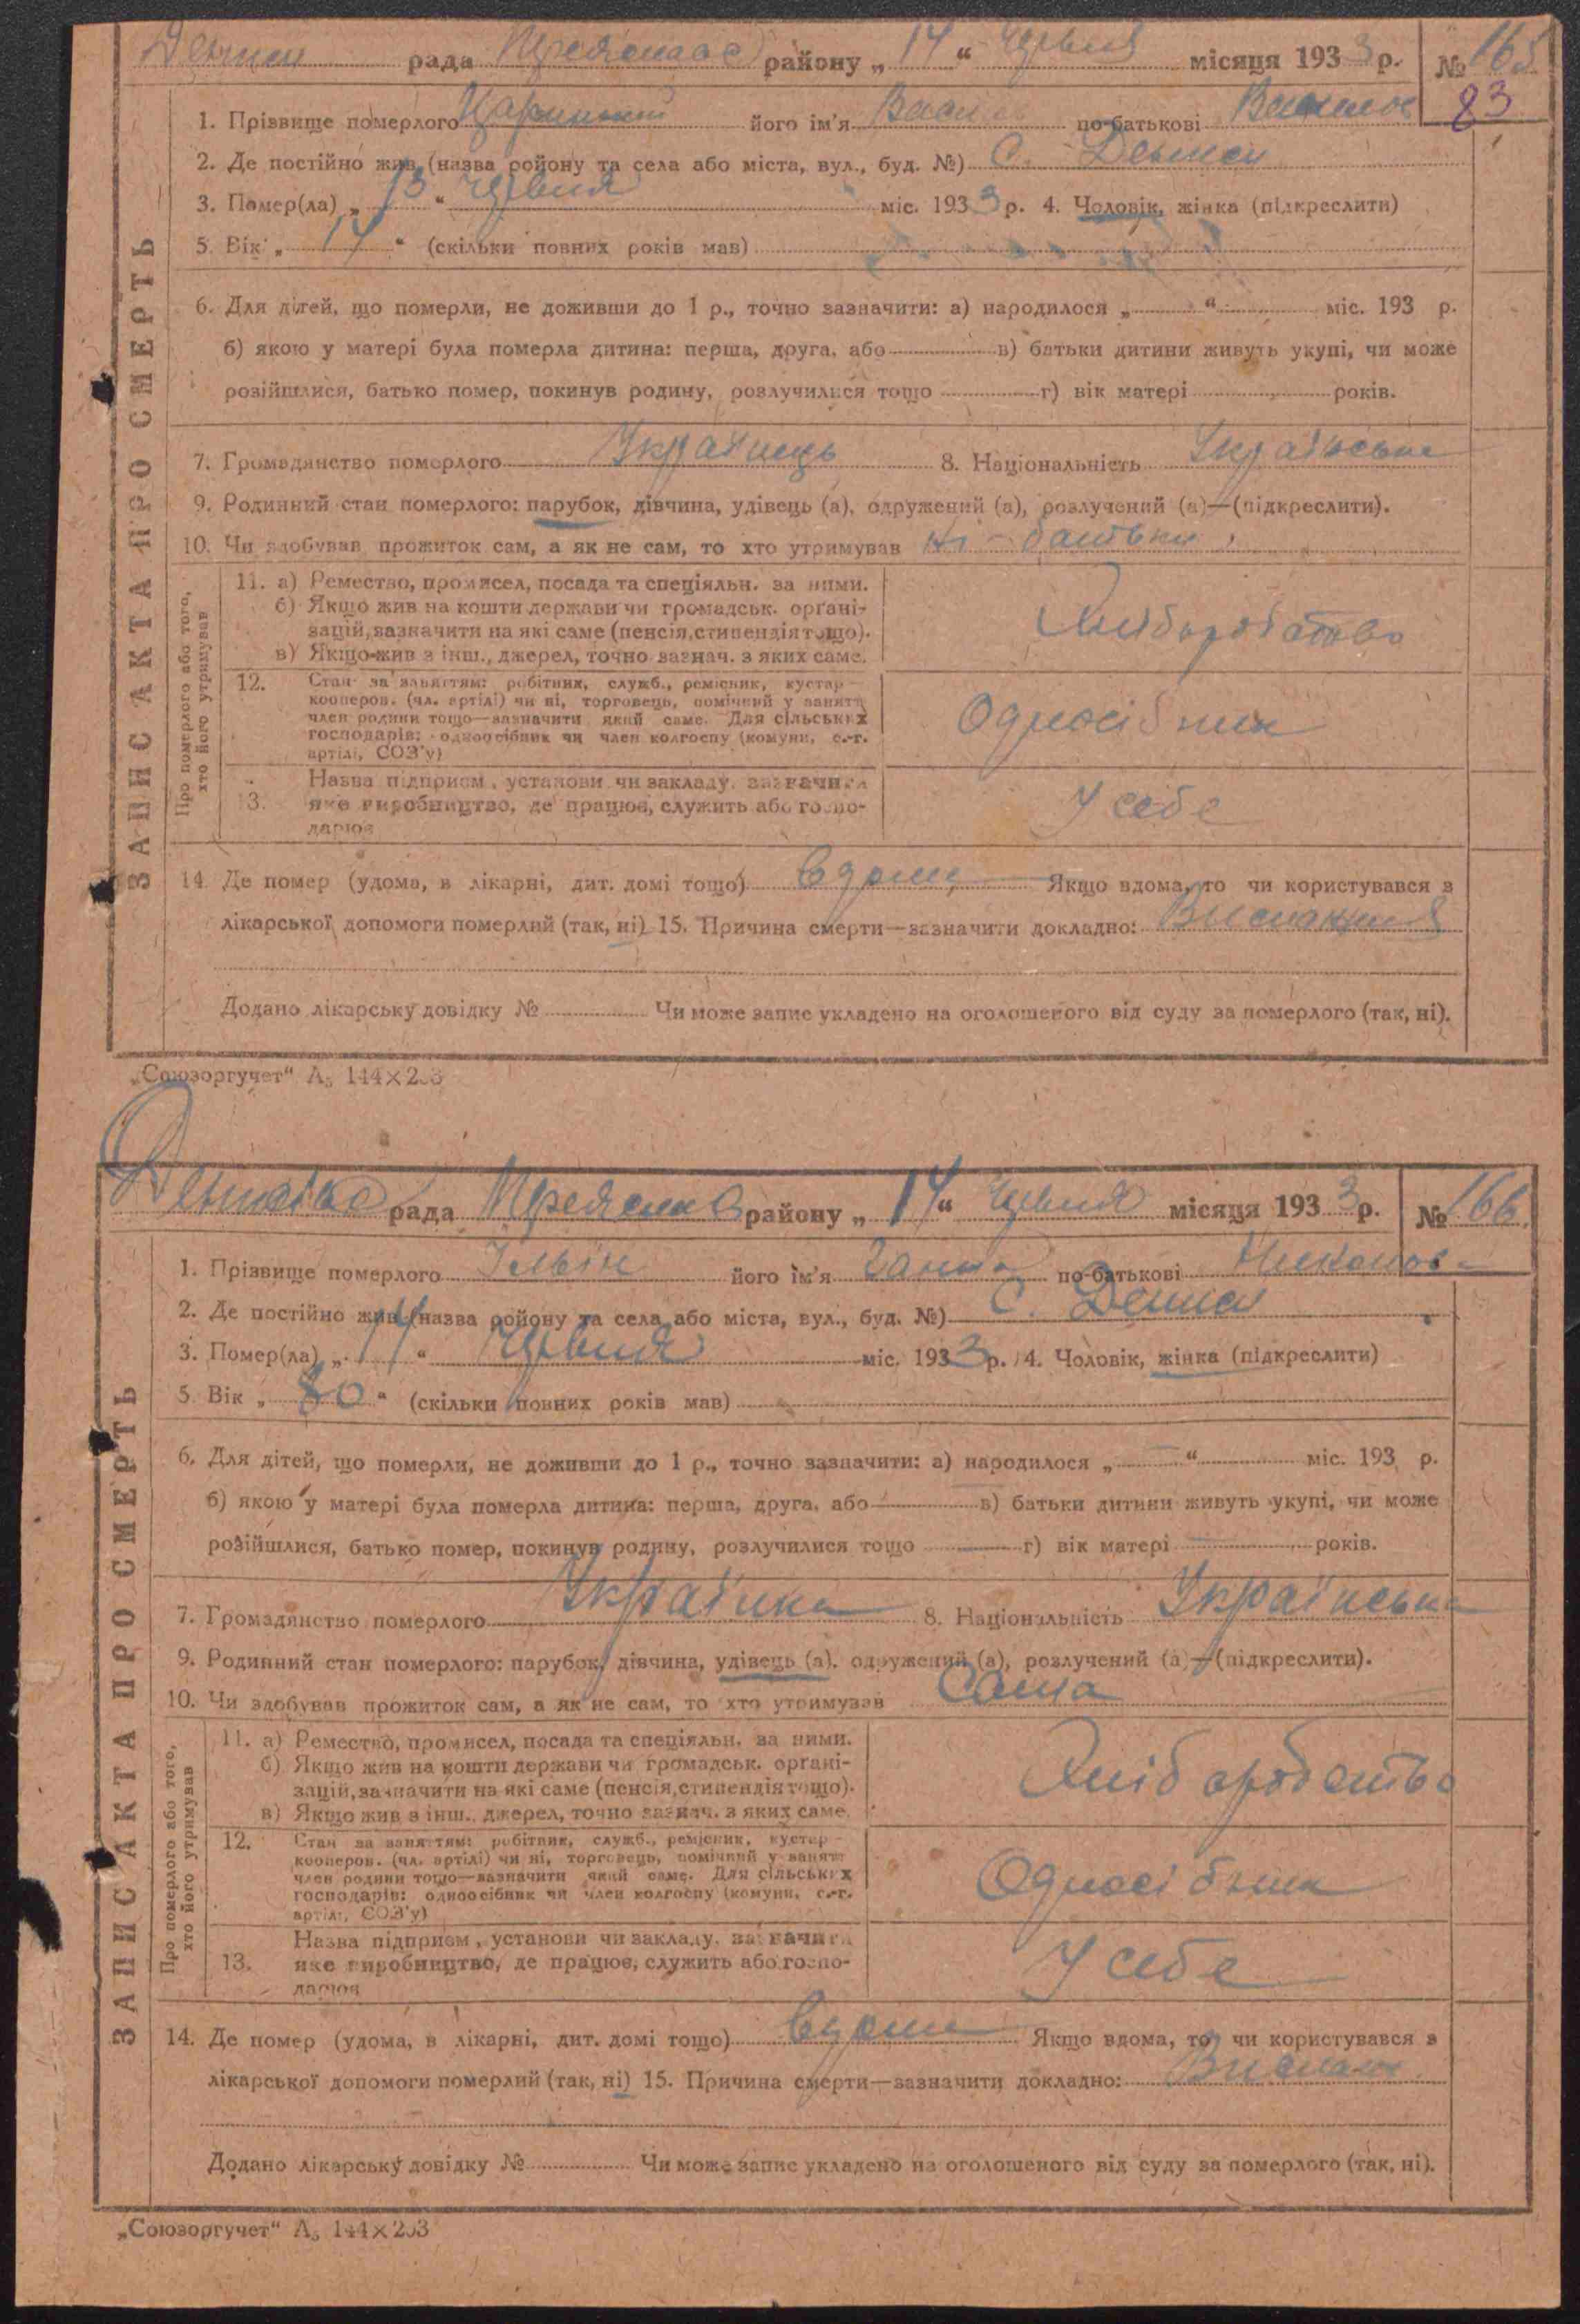 Дениси рада Переяслав району „ 14 “ Червня місяця 193 3 р. № 165
83
1. Прізвище померлого його ім'я Василь по-батькові
2. Де постійно жив (назва ройону та села або міста, вул., буд. №) С. Дениси
3. Помер(ла) „ 13 “ Червня міс. 193 3 р. 4. Чоловік, жінка (підкреслити)
5. Вік „ 14 “ (скільки повних років мав)
6. Для дітей, що померли, не доживши до 1 р., точно зазначити: а) народилося „ “ міс. 193 р.
б) якою у матері була померла дитина: перша, друга, або в) батьки дитини живуть укупі, чи може
розійшлися, батько помер, покинув родину, розлучилися тощо г) вік матері років.
7. Громадянство померлого Українець 8. Національність Українська
9. Родинний стан померлого: парубок, дівчина, удівець (а), одружений (а), розлучений (а)—(підкреслити).
10. Чи здобував прожиток сам, а як не сам, то хто утримував Ні - батьки
ЗАПИС АКТА ПРО СМЕРТЬ
Про померлого або того, хто його утримував
11. а) Ремество, промисел, посада та спеціяльн. за ними.
б) Якщо жив на кошти держави чи громадськ. органі-
зацій, зазначити на які саме (пенсія, стипендія тощо).
в) Якщо жив з інш., джерел, точно зазнач. з яких саме.
Хліборобство
12. Стан за заняттям: робітник, служб., ремісник, кустар—
кооперов. (чл. артілі) чи ні, торговець, помічний у занятті
член родини тощо—зазначити який саме. Для сільських
господарів: одноосібник чи член колгоспу (комуни, с.-г.
артілі, СОЗ'у)
Одноосібник
13. Назва підприєм., установи чи закладу, зазначити
яке виробництво, де працює, служить або госпо-
дарює
У себе
14. Де помер (удома, в лікарні, дит. домі тощо) вдома Якщо вдома, то чи користувався з
лікарської допомоги померлий (так, ні) 15. Причина смерти—зазначити докладно: Виснаження
Додано лікарську довідку № Чи може запис укладено на оголошеного від суду за померлого (так, ні).
„Союзоргучет“ А₅ 144×203
Денисівс рада Переяслав району „ 14 “ Червня місяця 193 3 р. № 166
1. Прізвище померлого його ім'я Ганна по-батькові
2. Де постійно жив (назва ройону та села або міста, вул., буд. №) С. Дениси
3. Помер(ла) „ 14 “ Червня міс. 193 3 р. 4. Чоловік, жінка (підкреслити)
5. Вік „ 80 “ (скільки повних років мав)
6. Для дітей, що померли, не доживши до 1 р., точно зазначити: а) народилося „ “ міс. 193 р.
б) якою у матері була померла дитина: перша, друга, або в) батьки дитини живуть укупі, чи може
розійшлися, батько помер, покинув родину, розлучилися тощо г) вік матері років.
7. Громадянство померлого Українка 8. Національність Українська
9. Родинний стан померлого: парубок, дівчина, удівець (а), одружений (а), розлучений (а)—(підкреслити).
10. Чи здобував прожиток сам, а як не сам, то хто утримував Сама
ЗАПИС АКТА ПРО СМЕРТЬ
Про померлого або того, хто його утримував
11. а) Ремество, промисел, посада та спеціяльн. за ними.
б) Якщо жив на кошти держави чи громадськ. органі-
зацій, зазначити на які саме (пенсія, стипендія тощо).
в) Якщо жив з інш., джерел, точно зазнач. з яких саме.
Хліборобство
12. Стан за заняттям: робітник, служб., ремісник, кустар—
кооперов. (чл. артілі) чи ні, торговець, помічний у занятті
член родини тощо—зазначити який саме. Для сільських
господарів: одноосібник чи член колгоспу (комуни, с.-г.
артілі, СОЗ'у)
Одноосібник
13. Назва підприєм., установи чи закладу, зазначити
яке виробництво, де працює, служить або госпо-
дарює
У себе
14. Де помер (удома, в лікарні, дит. домі тощо) вдома Якщо вдома, то чи користувався з
лікарської допомоги померлий (так, ні) 15. Причина смерти—зазначити докладно:
Додано лікарську довідку № Чи може запис укладено на оголошеного від суду за померлого (так, ні).
„Союзоргучет“ А₅ 144×203